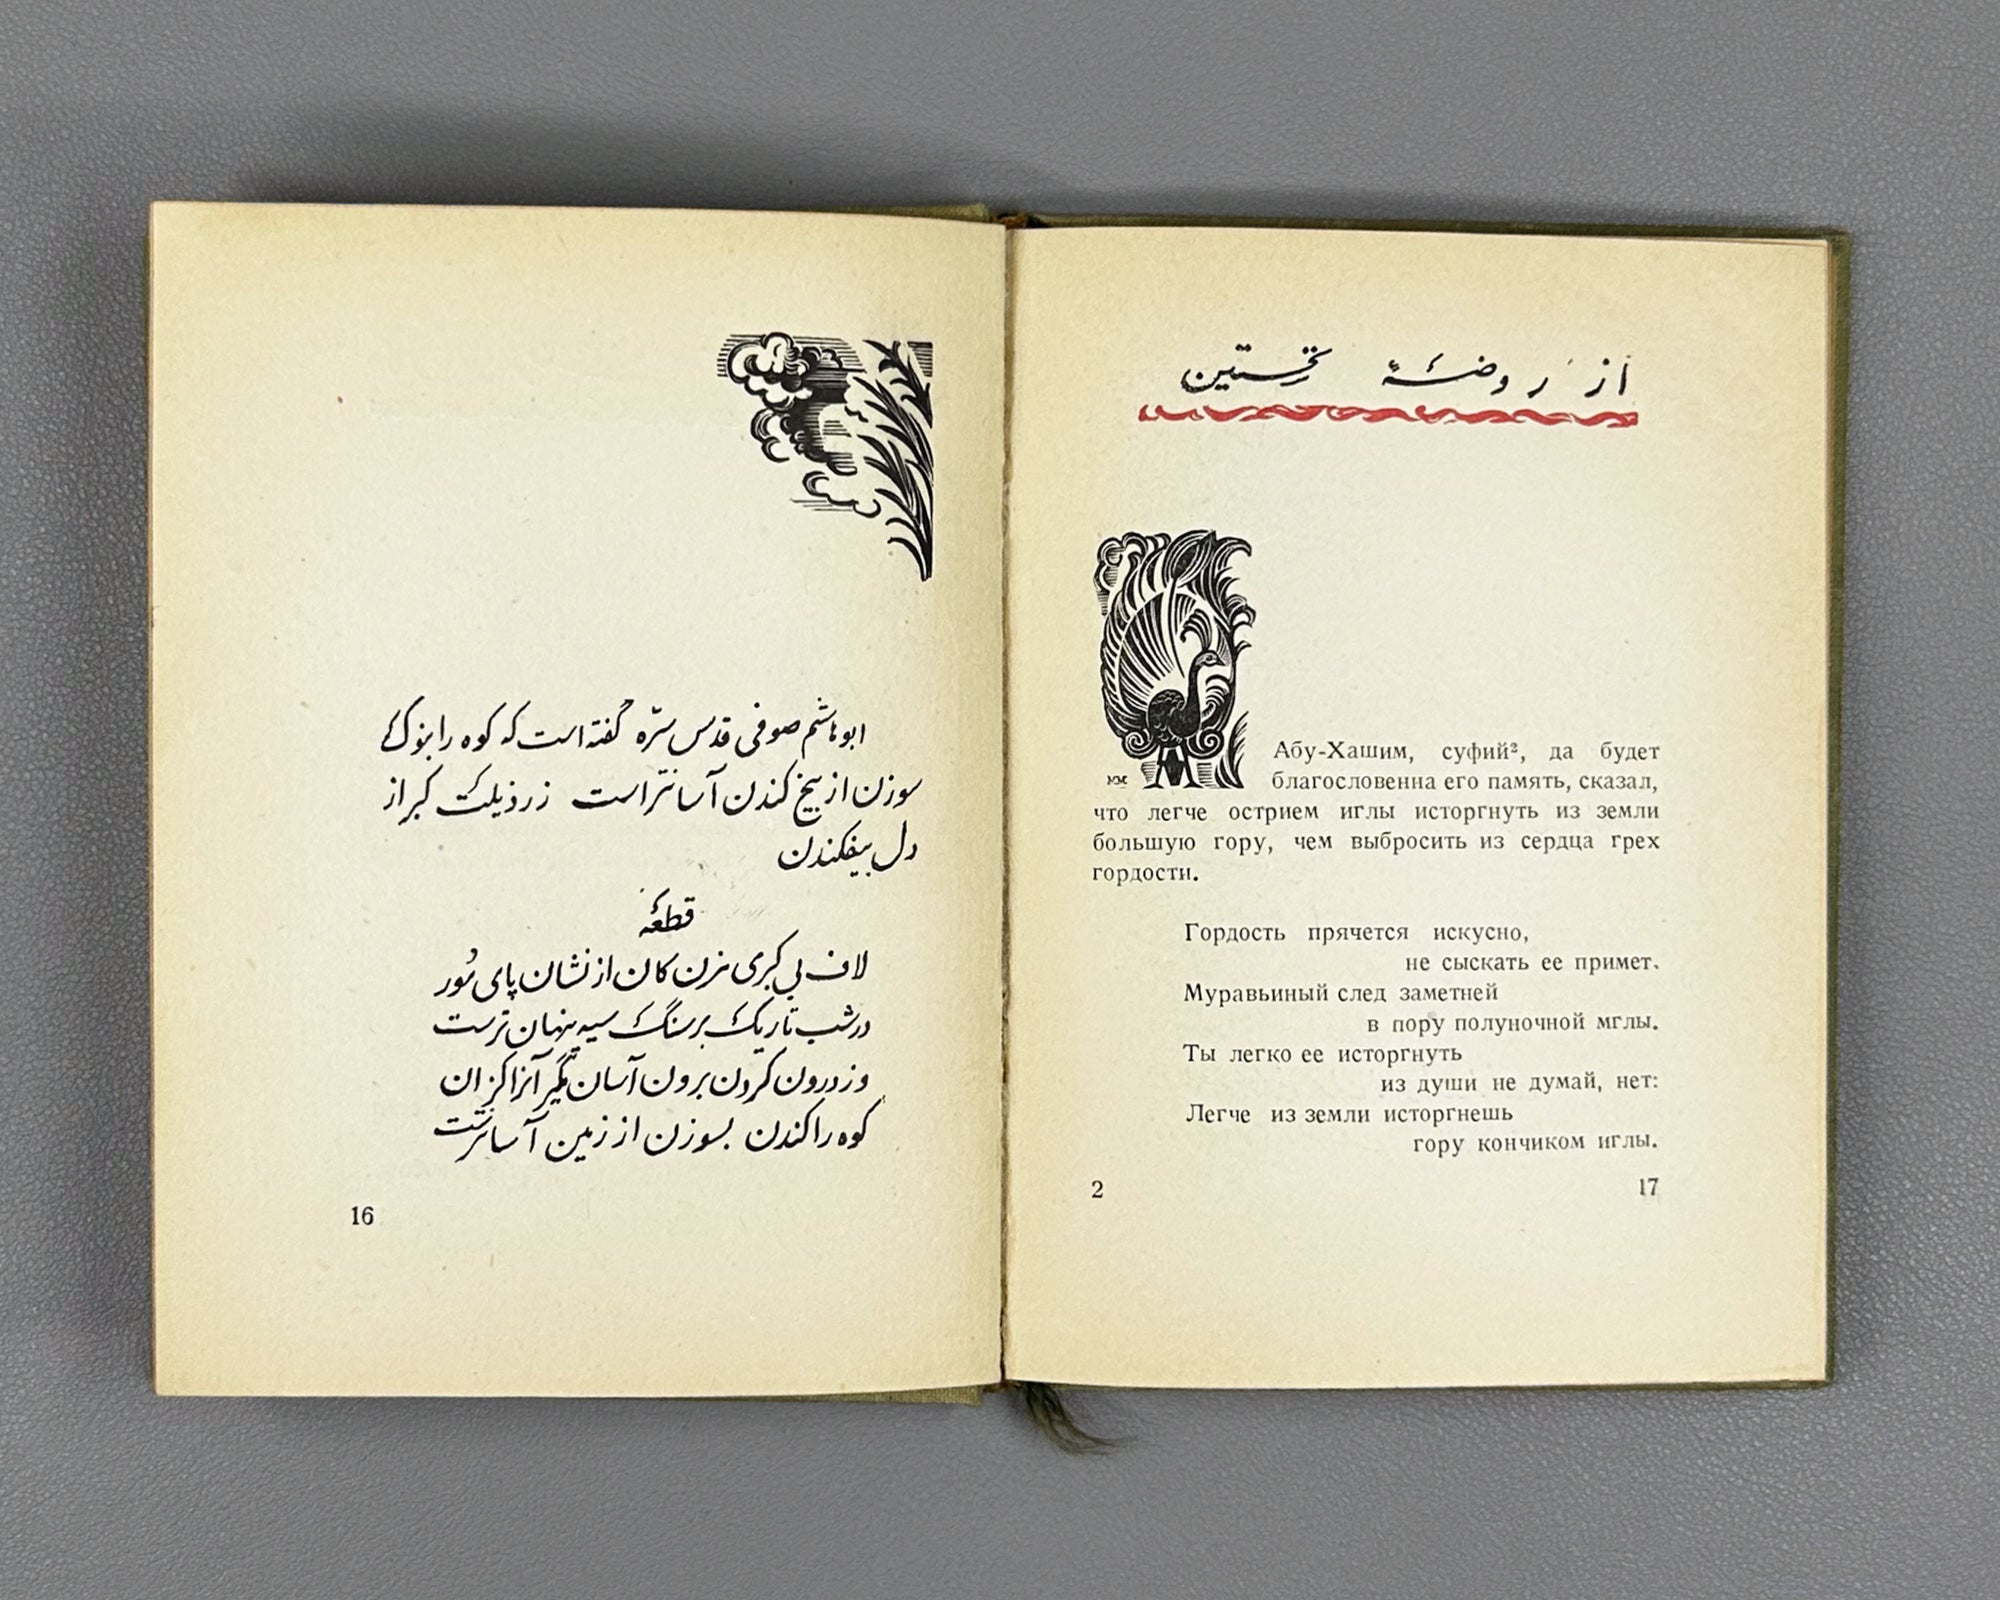 ابوهاشم صوفی قدس سرّه گفته است که کوه را بنوک
سوزن از بیخ کندن آسانتر است ز رذیلت کبر از
دل بیفکندن
قطعهٔ
لاف بی کبری مزن کان از نشان پای مور
در شب تاریک بر سنگ سیه پنهان ترست
وز درون کردن برون آسان مگیر آنرا کزان
کوه را کندن بسوزن از زمین آسانترست
16
از روضهٔ نخستین
Абу-Хашим, суфий², да будет
благословенна его память, сказал,
что легче острием иглы исторгнуть из земли
большую гору, чем выбросить из сердца грех
гордости.
Гордость прячется искусно,
не сыскать ее примет.
Муравьиный след заметней
в пору полуночной мглы.
Ты легко ее исторгнуть
из души не думай, нет:
Легче из земли исторгнешь
гору кончиком иглы.
2 17